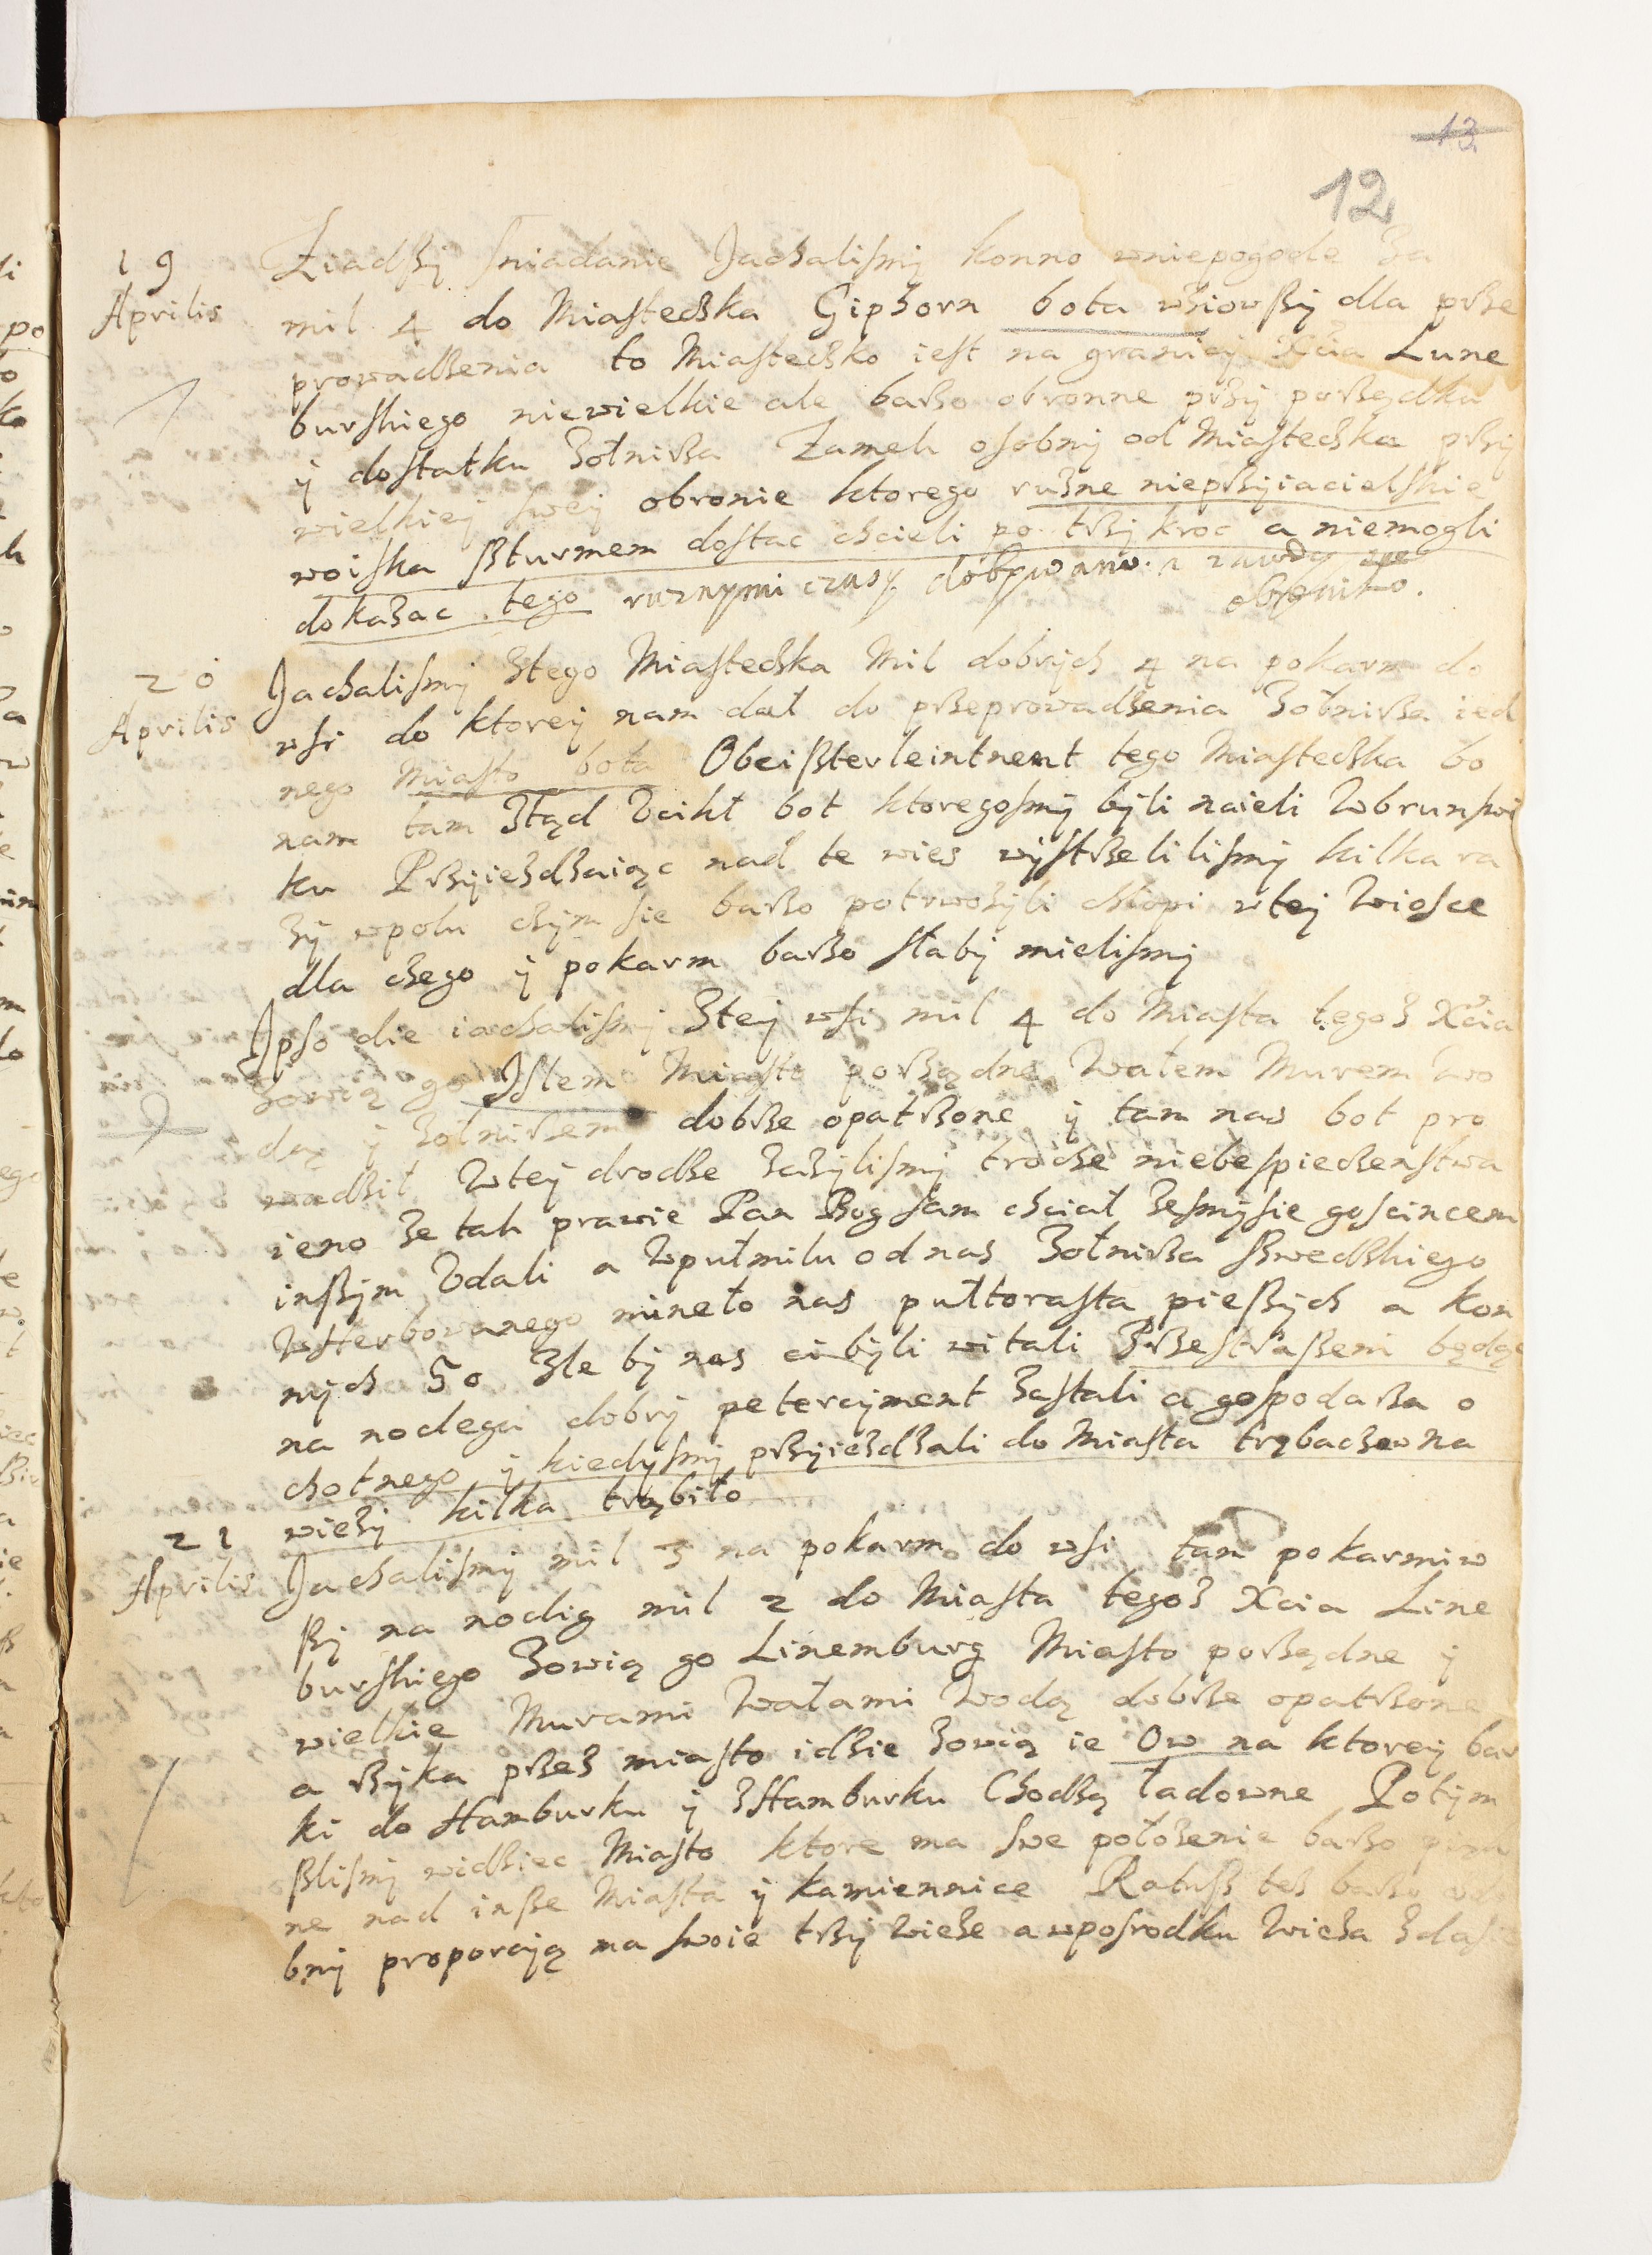 13
12
19 Aprilis
Ziadßÿ sniadanie Jachalismÿ konno wniepogode za
mil 4 do Miasteczka Gipzorn bota wziowßÿ dla prze
prowadzenia to Miasteczko iest na granicÿ Xcia Lune
burskiego niewielkie ale barzo obronne przÿ porządku
ÿ dostatku zołnirza Zamek osobnÿ od Miasteczka przÿ
wielkieÿ sweÿ obronie ktorego ruzne nieprzÿiacielskie
woiska ßturmem dostac chcieli po trzÿ kroc a niemogli
dokazac tego ruznymi czasy dobywano. a zawdy sie
obronino.
20 Aprilis
Jachalismÿ ztego Miasteczka Mil dobrÿch 4 na pokarm do
wsi do ktoreÿ nam dał do przeprowadzenia zołnirza ied
nego miasto bota Obeißterleintnent tego Miasteczka bo
nam tam ztąd Vcikł bot ktoregosmÿ bÿli naieli Wbrunswi
ku Przÿiezdzaiąc nad te wies wÿstrzelilismÿ kilka ra
zÿ wpolu czÿm sie barzo potrwozÿli chłopi wteÿ Wiosce
dla czego ÿ pokarm barzo słabÿ mielismÿ
Ipso die iachalismÿ zteÿ wsi mil 4 do Miasta tegoz Xcia
zowią go Istem Miasto porządne Wałem Murem Wo
dą ÿ zołnirzem dobrze opatrzone ÿ tam nas bot pro
wadził Wteÿ drodze zazÿlismÿ troche niebespieczenstwa
ieno ze tak prawie Pan Bog sam chciał zesmÿsie goscincem
inßÿm Vdali a Wpułmilu od nas zołnirza Swedzkiego
Wsterbowanego mineło nas pułtorasta pießÿch a kon
nÿch 50 zle bÿ nas ci bÿli witali Przestraßeni będąc
na noclegu dobrÿ petercÿment zastali a gospodarza o
chotnego ÿ kiedÿsmÿ przÿiezdzali do Miasta trąbaczow na
wiezÿ kilka trąbiło
21 Aprilis
Jachalismÿ mil 3 na pokarm do wsi tam pokarmiw
ßÿ na noclig mil 2 do Miasta tegoz Xcia Line
burskiego zowią go Linemburg Miasto porządne ÿ
wielkie Murami Wałami Wodą dobrze opatrzone
a rzÿka przez miasto idzie zowią ie Ow na ktoreÿ bar
ki do Hamburku ÿ zHamburku Chodzą ładowne Potÿm
ßlismÿ widziec Miasto ktore ma swe położenie barzo pięk
ne nad inße Miasta ÿ kamiennice Ratuß tez barzo ozdo
bnÿ proporcją ma swoie trzÿ Wieze a wposrodku Wieza zdasie